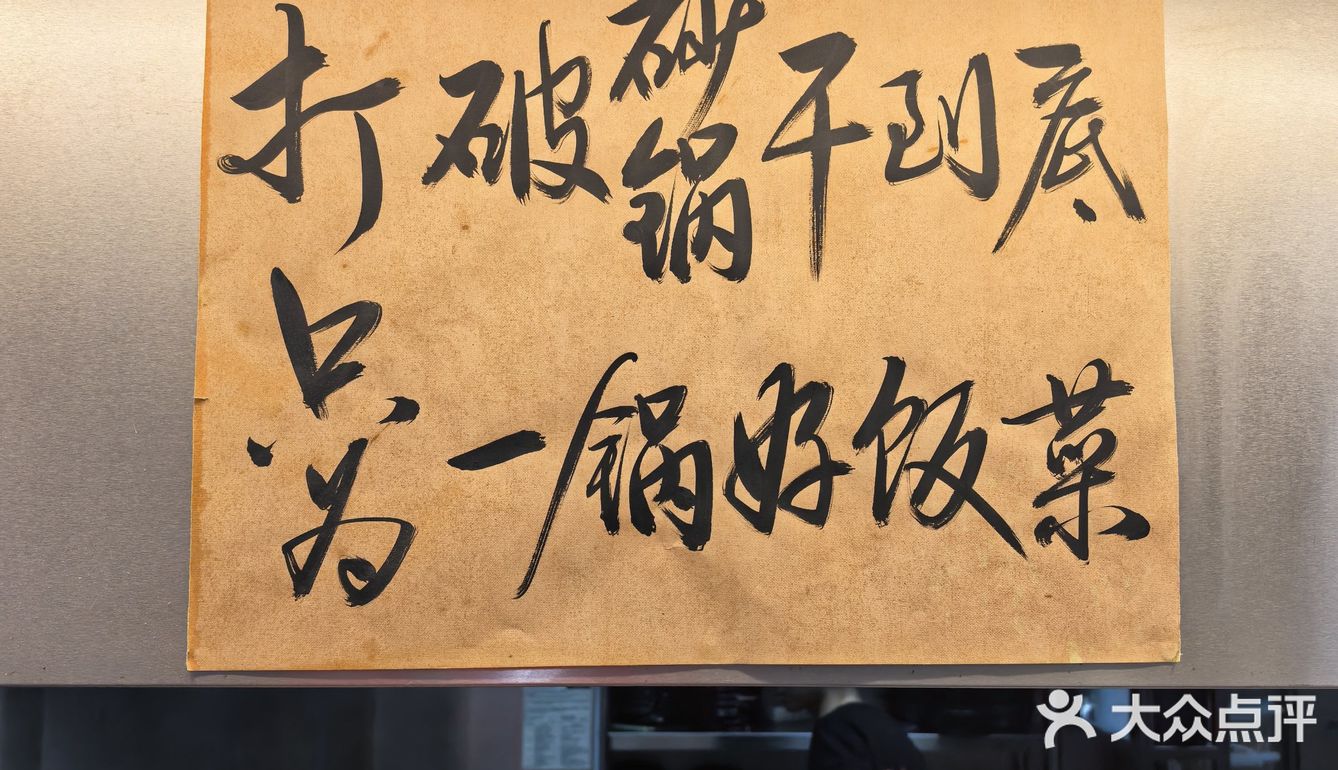 打破砂锅干到底
只为一锅好饭菜
大众点评